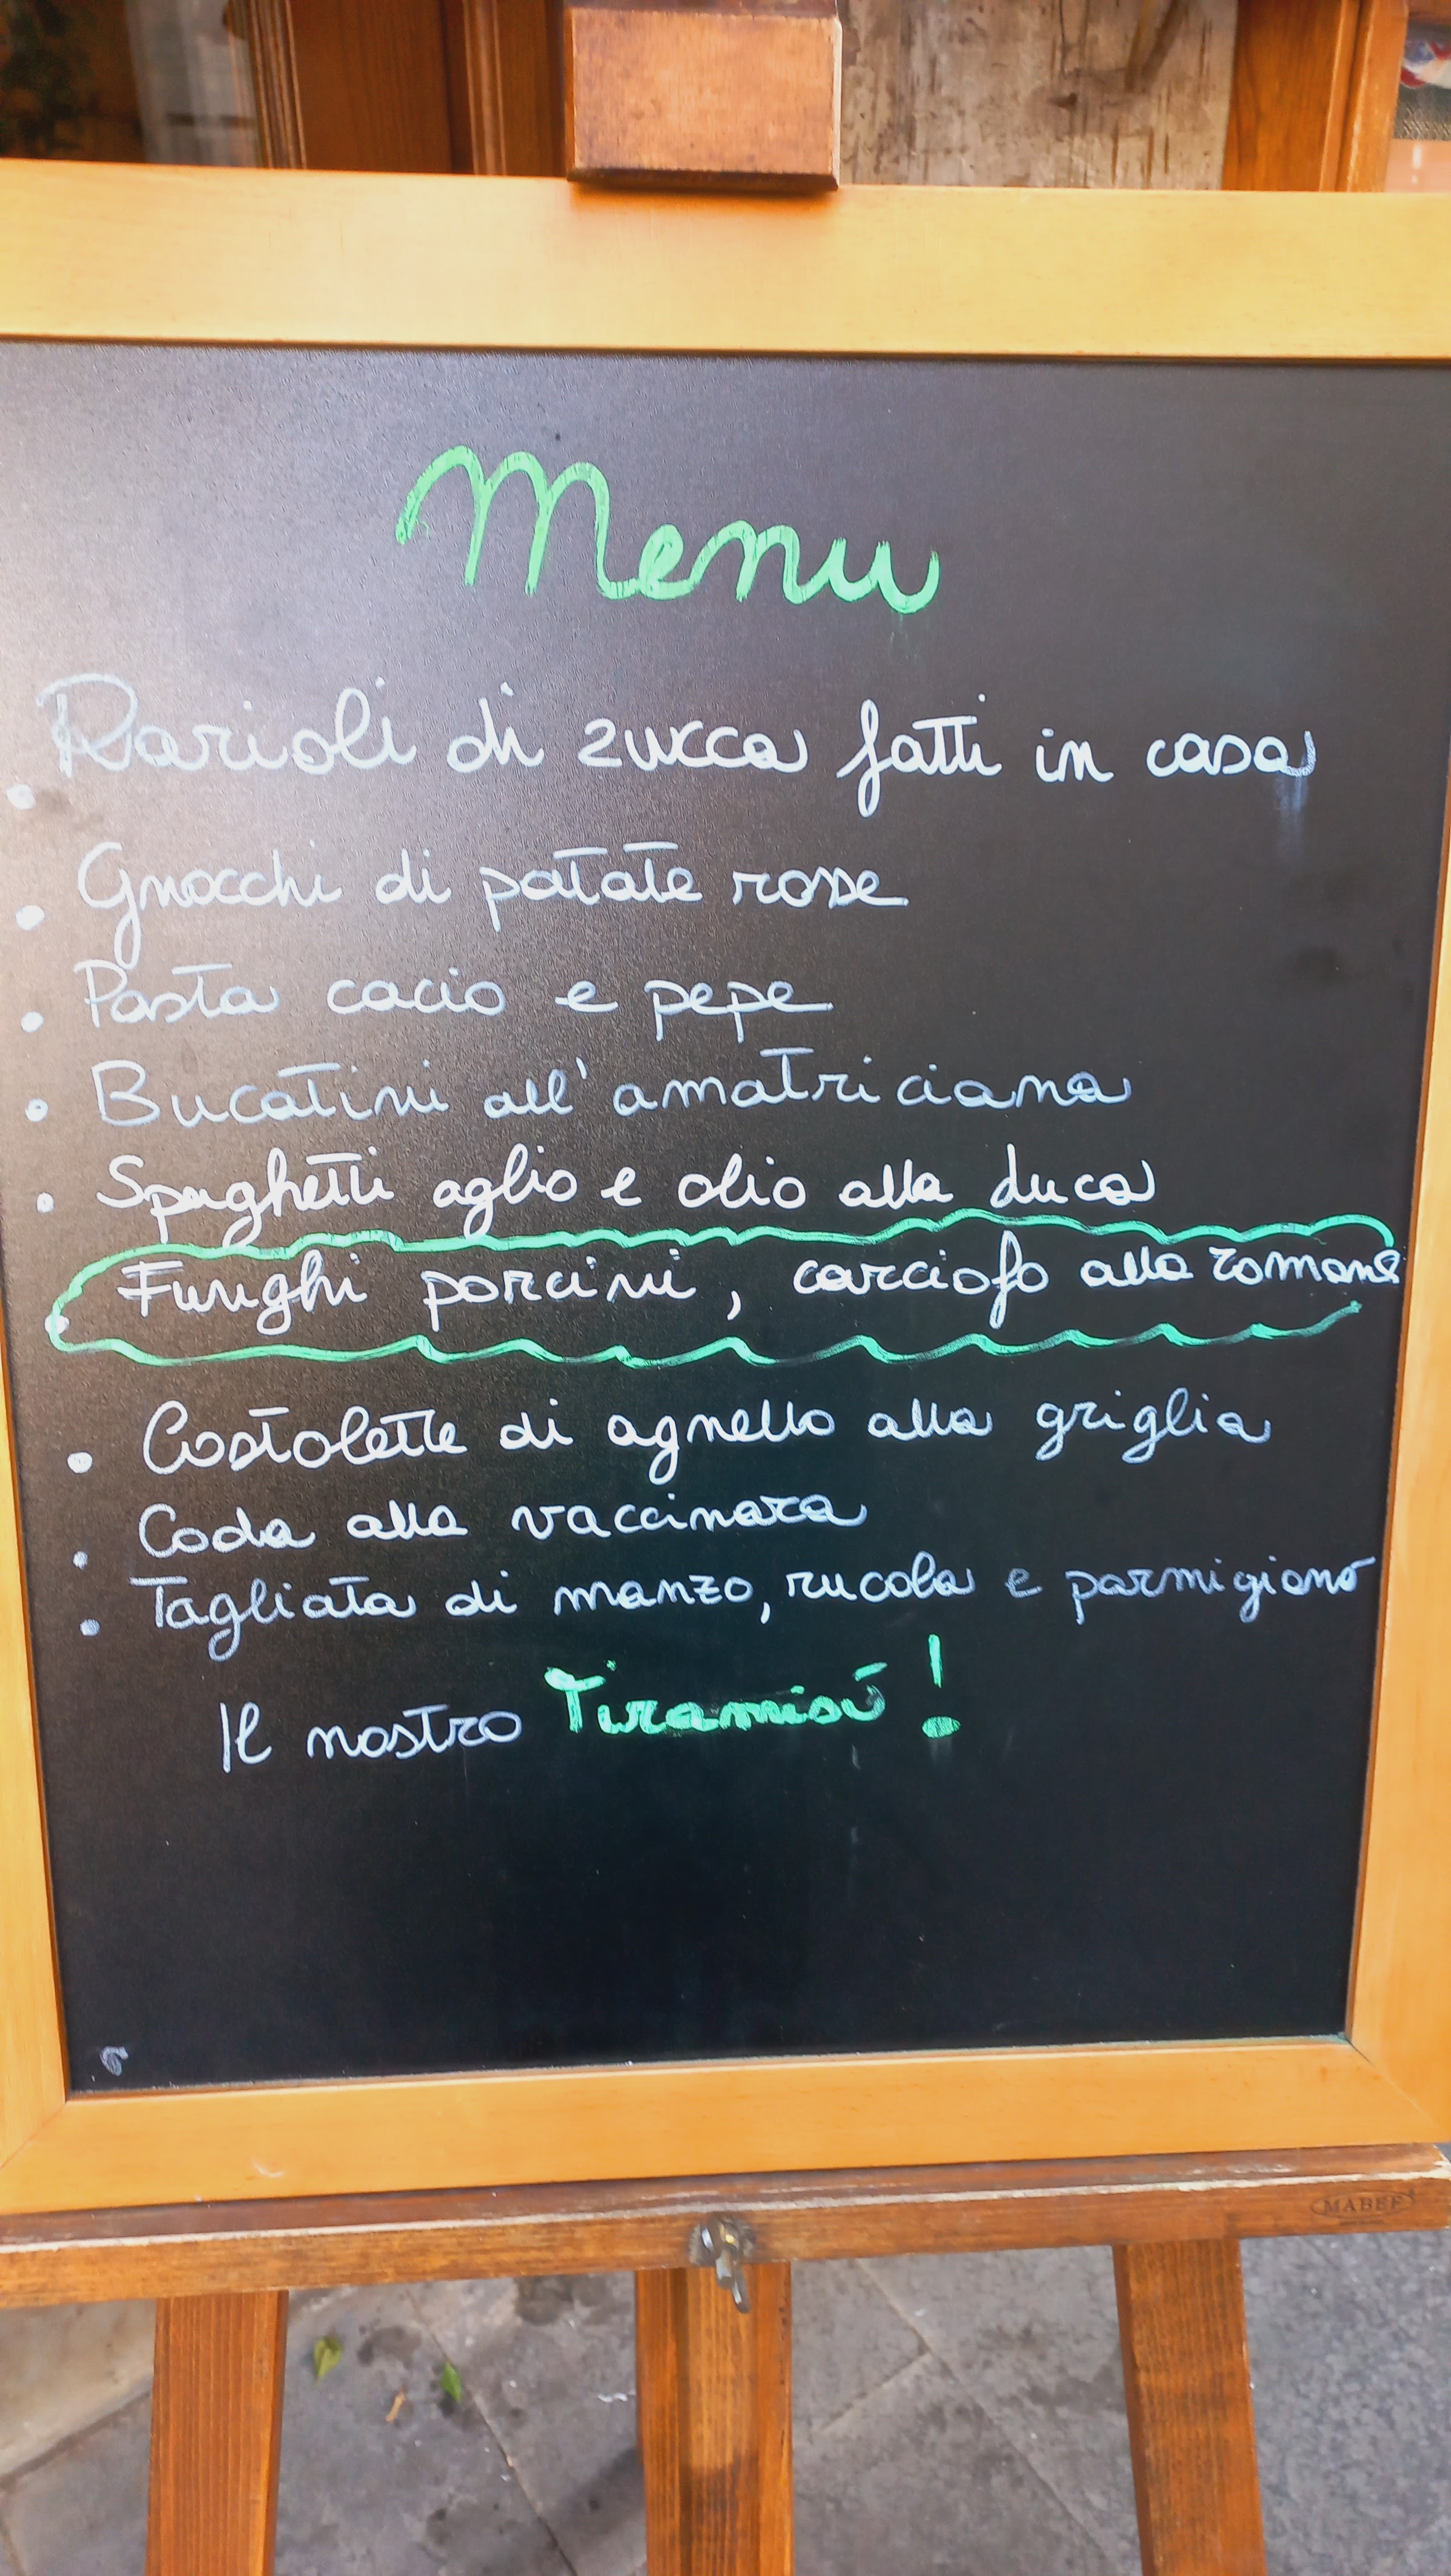 Menu
Ravioli di zucca fatti in casa
• Gnocchi di patate rosse
• Pasta cacio e pepe
• Bucatini all'amatriciana
• Spaghetti aglio e olio alla duca
• Funghi porcini, carciofo alla romana
• Costolette di agnello alla griglia
• Coda alla vaccinara
• Tagliata di manzo, rucola e parmigiano
Il nostro Tiramisù!
MABEF